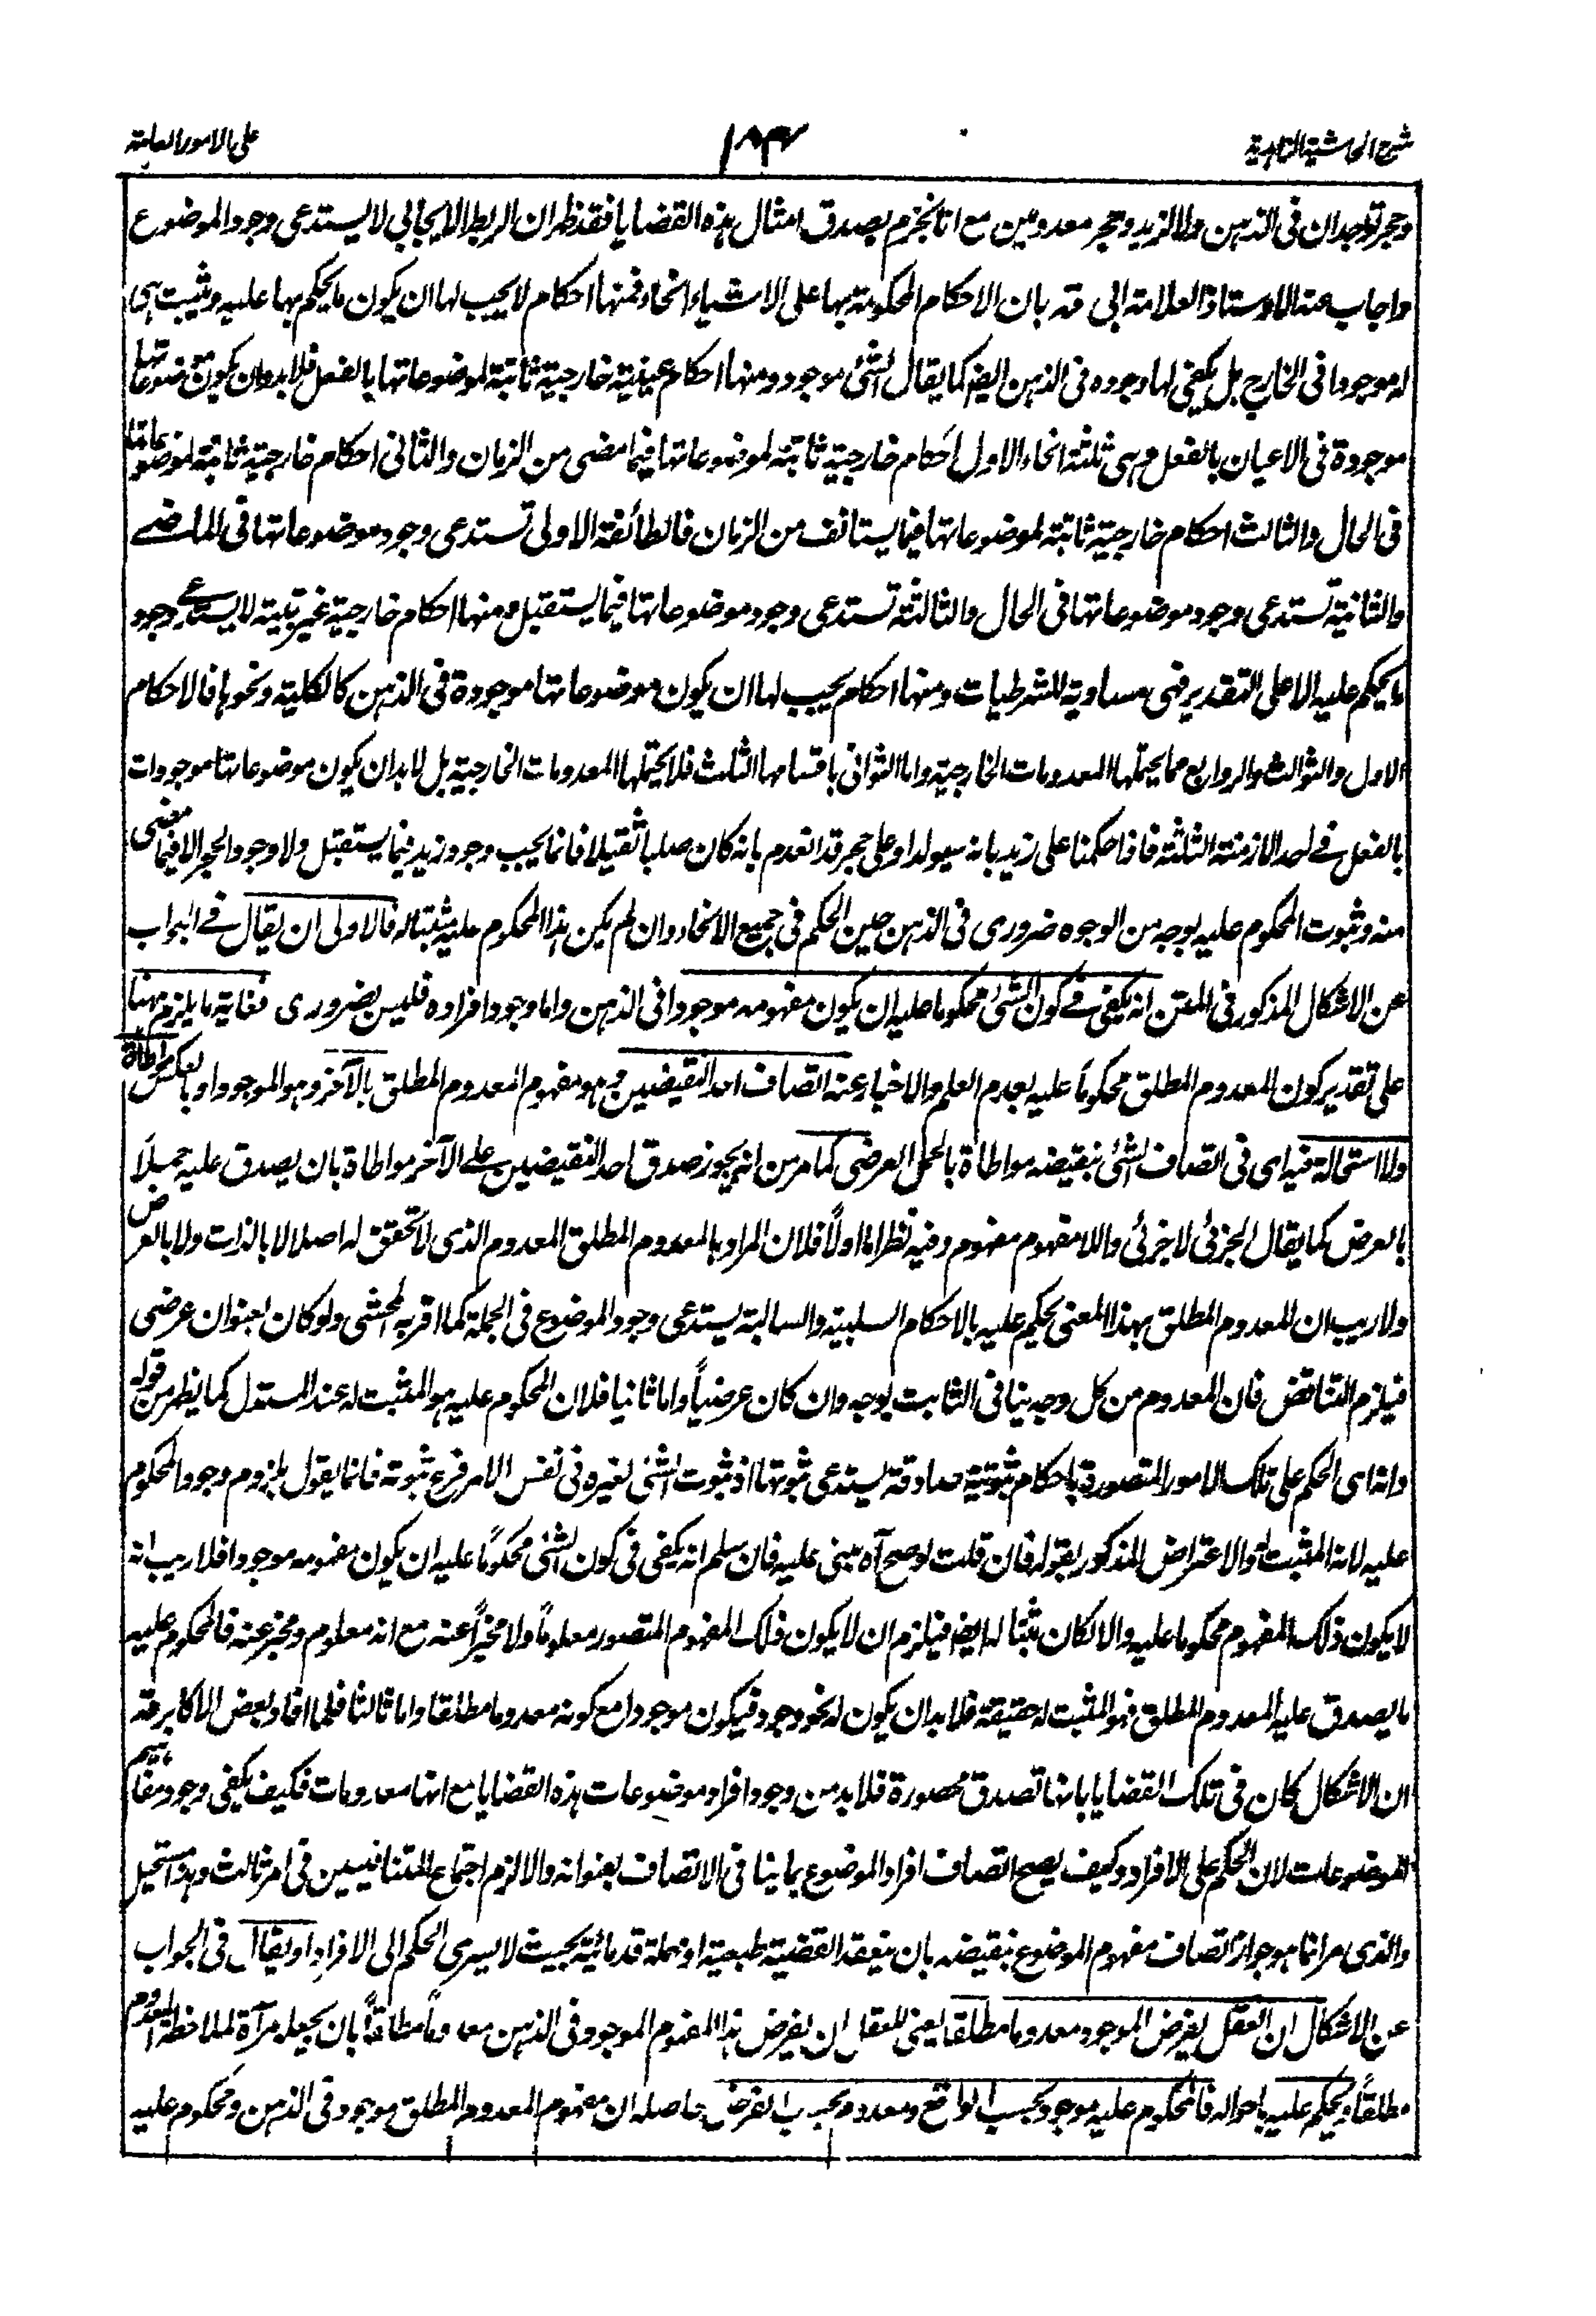 شرح الحاشية الزاهدية
على الامور العامة
وحجر توجدان في الذهن والا لزيد وحجر معدومين مع انا نجزم بصدق امثال هذه القضايا فقد ظهر ان الربط الايجابي لا يستدعي وجود الموضوع
واجاب عنه الاوستاذ العلامة ابي قده بان الاحكام المحكومة بها على الاشياء انحاء فمنها احكام لا يجب لها ان يكون ما يحكم بها عليه ويثبت هي
له موجودا في الخارج بل يكفي لها وجوده في الذهن ايضا كما يقال الشئ موجود ومنها احكام عينية خارجية ثابتة لموضوعاتها بالفعل فلا بد وان يكون موضوعاتها
موجودة في الاعيان بالفعل وهي ثلثة انحاء الاول احكام خارجية ثابتة لموضوعاتها فيما مضى من الزمان والثاني احكام خارجية ثابتة لموضوعاتها
في الحال والثالث احكام خارجية ثابتة لموضوعاتها فيما يستانف من الزمان فالطائفة الاولى تستدعي وجود موضوعاتها في الماضي
والثانية تستدعي وجود موضوعاتها في الحال والثالثة تستدعي وجود موضوعاتها فيما يستقبل ومنها احكام خارجية غير بتية لا يستدعي وجود
ما يحكم عليه الا على التقدير فهي مساوية للشرطيات ومنها احكام يجب لها ان يكون موضوعاتها موجودة في الذهن كالكلية ونحوها فالاحكام
الاول والثوالث والروابع مما يحتملها المعدومات الخارجية واما الثواني باقسامها الثلث فلا يحتملها المعدومات الخارجية بل لا بد ان يكون موضوعاتها موجودات
بالفعل في احد الازمنة الثلثة فاذا حكمنا على زيد بانه سيولد او على حجر قد انعدم بانه كان صلبا ثقيلا فانما يجب وجود زيد فيما يستقبل ولا وجود الحجر الا فيما مضى
منه وثبوت المحكوم عليه بوجه من الوجوه ضروري في الذهن حين الحكم في جميع الانحاء وان لم يكن هذا المحكوم عليه مثبتا له فالاولى ان يقال في الجواب
عن الاشكال المذكور في المتن انه يكفي في كون الشئ محكوما عليه ان يكون مفهومه موجودا في الذهن واما وجود افراده فليس بضروري فغاية ما يلزم ههنا
على تقدير كون المعدوم المطلق محكوماً عليه بعدم العلم والاخبار عنه اتصاف احد النقيضين وهو مفهوم المعدوم المطلق بالآخر وهو الموجود او بالعكس مواطاة
ولا استحالة فيه اى في اتصاف الشئ بنقيضه مواطاة بالحمل العرضي كما مر من انه يجوز صدق احد النقيضين على الآخر مواطاة بان يصدق عليه حملاً
بالعرض كما يقال الجزئي لا جزئي واللا مفهوم مفهوم وفيه نظر اما اولاً فلان المراد بالمعدوم المطلق المعدوم الذي لا تحقق له اصلا لا بالذات ولا بالعرض
ولا ريب ان المعدوم المطلق بهذا المعنى يحكم عليه بالاحكام السلبية والسالبة يستدعي وجود الموضوع في الجملة كما اقر به المحشي ولو كان بعنوان عرضي
فيلزم التناقض فان المعدوم من كل وجه ينافي الثابت بوجه وان كان عرضياً واما ثانيا فلان المحكوم عليه هو المثبت له عند المستدل كما يظهر من قوله
وانه اى الحكم على تلك الامور المتصورة باحكام ثبوتية صادقة يستدعي ثبوتها اذ ثبوت الشئ لغيره في نفس الامر فرع ثبوته فانما يقول بلزوم وجود المحكوم
عليه لانه المثبت له والاعتراض المذكور بقوله فان قلت لو صح آه مبني عليه فان سلم انه يكفي في كون الشئ محكوماً عليه ان يكون مفهومه موجودا فلا ريب انه
لا يكون ذلك المفهوم محكوما عليه والا لكان مثبتا له ايضا فيلزم ان لا يكون ذلك المفهوم المتصور معلوماً ولا مخبراً عنه مع انه معلوم ومخبر عنه فالمحكوم عليه
ما يصدق عليه المعدوم المطلق فهو المثبت له حقيقة فلا بد ان يكون له نحو وجود فيكون موجودا مع كونه معدوما مطلقا واما ثالثا فلما افاد بعض الاكابر قده
ان الاشكال كان في تلك القضايا بانها تصدق محصورة فلا بد من وجود افراد موضوعات هذه القضايا مع انها معدومات فكيف يكفي وجود مفاهيم
الموضوعات لان الحكم على الافراد وكيف يصح اتصاف افراد الموضوع بما ينافي الاتصاف بعنوانه والا لزم اجتماع المتنافيين في امر ثالث وهو مستحيل
والذي مر انما هو جواز اتصاف مفهوم الموضوع بنقيضه بان ينعقد القضية طبعية او مهملة قدمائية بحيث لا يسري الحكم الى الافراد او يقال في الجواب
عن الاشكال ان العقل يفرض الموجود معدوما مطلقا يعني للعقل ان يفرض هذا المفهوم الموجود في الذهن معدوماً مطلقاً بان يجعله مرآة لملاحظة المعدوم
مطلقاً ويحكم عليه باحواله فالمحكوم عليه موجود بحسب الواقع ومعدوم بحسب الفرض حاصله ان مفهوم المعدوم المطلق موجود في الذهن ومحكوم عليه